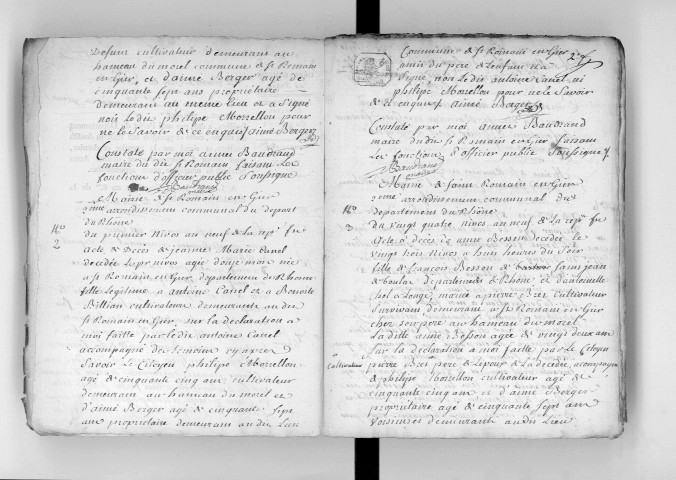 Defunt cultivateur demeurant au
hameau du morel commune de St Romain
en Gier, et d'aimé Berger agé de
cinquante sept ans propriétaire
demeurant au meme lieu et a Signé
nois le dit philipe Morellon pour
ne le Savoir de ce enquis aimé Berger
Constaté par moi aimé Baudrand
maire du dit St Romain faisant les
fonctions d'officier public Soussigné
Baudrand
Mairie de St Romain en Gier
arrondissement communal du depart
du Rhône
No 2
du premier Nivos an neuf de la rep fr
acte de Décès de jeanne Marie Canel
decedée le pr nivos agée d'onze mois née
a St Romain en Gier, departement du Rhone
fille Legitime a antoine Canel et a Benoite
Billian cultivateurs demeurants au dit
St Romain en Gier, sur la declaration a
moi faitte par le dit antoine Canel
accompagné de temoins cy apres
Savoir Le Citoyen philipe Morellon
agé de cinquante cinq ans cultivateur
demeurant au hameau du morel et
d'aimé Berger agé de cinquante sept
ans propriétaire demeurant au dit Lieu
Commune de St Romain en Gier
amis du pere de l'enfant et a
Signé, non Le dit antoine Canel, ni
philipe Morellon pour ne le Savoir
de ce enquis aimé Berger
Constaté par moi aimé Baudrand
maire du dit St Romain en Gier faisant
les fonctions d'officier public Soussigné
Baudrand
Mairie de Saint Romain en Gier
arrondissement communal du
departement du Rhône
No 3
du vingt quatre nivos an neuf de La rep fr
acte de décès de anne Besson decedée le
vingt trois Nivos a huit heures du Soir
fille de françois Besson de Saint jean
de toulas departement du Rhône, et d'antoinette
mariée a pierre Bret Cultivateur
Survivant demeurant a St Romain en Gier
chez son pere au hameau du morel
La ditte anne Besson agée de vingt deux ans
Sur la declaration a moi faitte par Le Citoyen
Cultivateur
pierre Bret pere de L'epoux de La decedée, accompagné
de philipe Morellon cultivateur agé de
cinquante cinq ans et d'aimé Berger
propriétaire agé de cinquante Sept ans
voisins et demeurants au dit Lieu